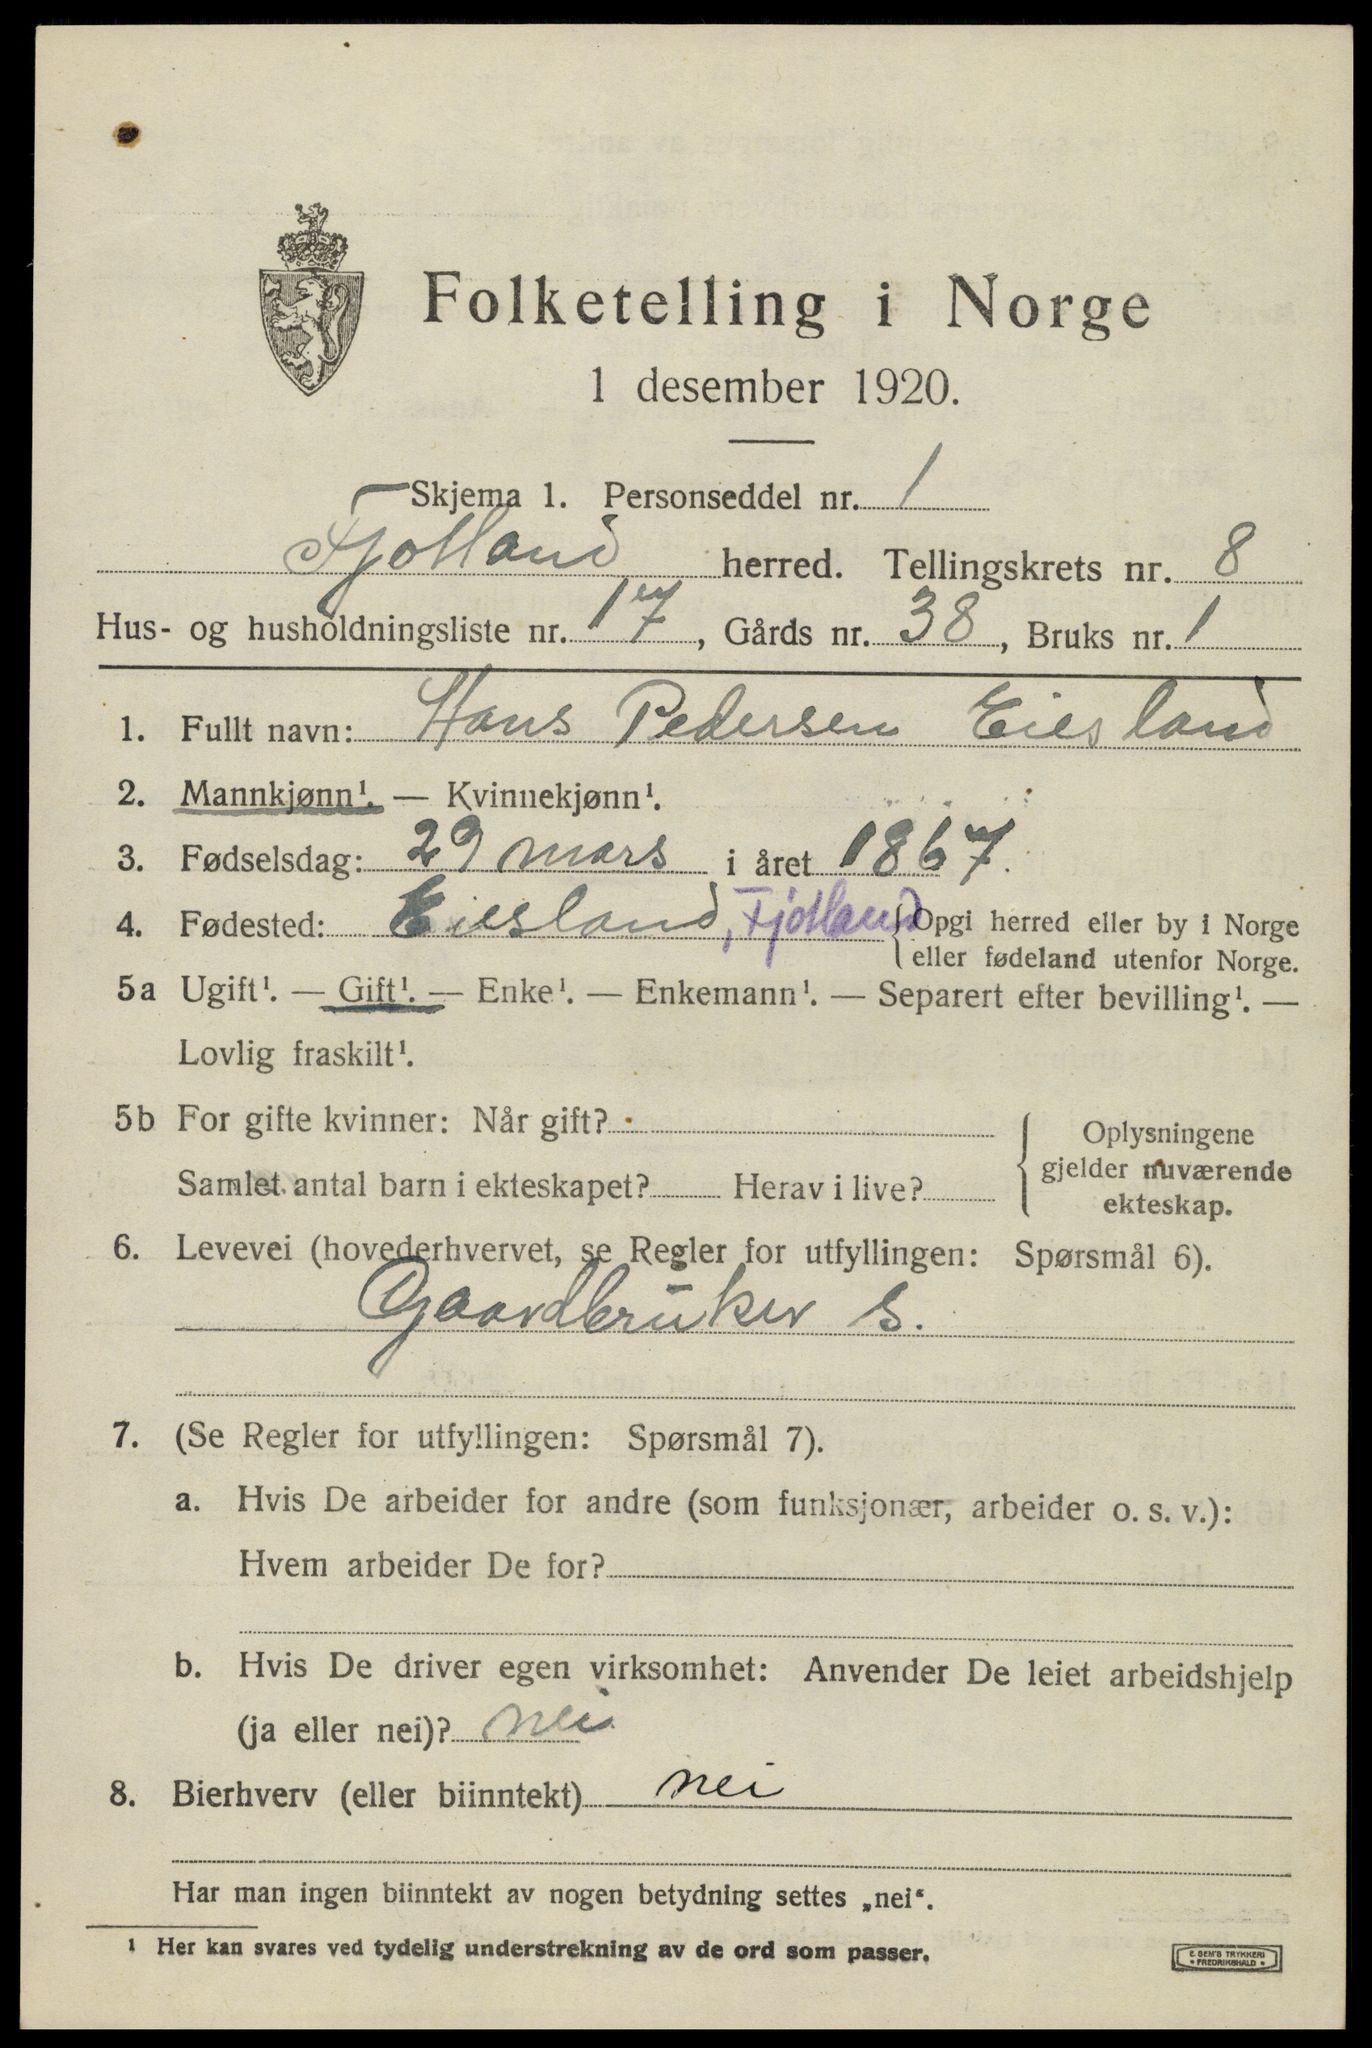 Folketelling i Norge
1 desember 1920.
Skjema 1. Personseddel nr. 1
Fjotland herred. Tellingskrets nr. 8
Hus- og husholdningsliste nr. 17, Gårds nr. 38, Bruks nr. 1
1. Fullt navn: Hans Pedersen Eiesland
2. Mannkjønn¹. — Kvinnekjønn¹.
3. Fødselsdag: 29 mars i året 1867.
4. Fødested: Eiesland, Fjotland {Opgi herred eller by i Norge
eller fødeland utenfor Norge.
5a Ugift¹. — Gift¹. — Enke¹. — Enkemann¹. — Separert efter bevilling¹. —
Lovlig fraskilt¹.
5b For gifte kvinner: Når gift?
Samlet antal barn i ekteskapet? Herav i live?
Oplysningene
gjelder nuværende
ekteskap.
6. Levevei (hovederhvervet, se Regler for utfyllingen: Spørsmål 6).
Gaardbruker S.
7. (Se Regler for utfyllingen: Spørsmål 7).
a. Hvis De arbeider for andre (som funksjonær, arbeider o. s. v.):
Hvem arbeider De for?
b. Hvis De driver egen virksomhet: Anvender De leiet arbeidshjelp
(ja eller nei)? nei
8. Bierhverv (eller biinntekt) nei
Har man ingen biinntekt av nogen betydning settes „nei“.
¹ Her kan svares ved tydelig understrekning av de ord som passer.
E. SEM'S TRYKKERI
• FREDRIKSHALD •